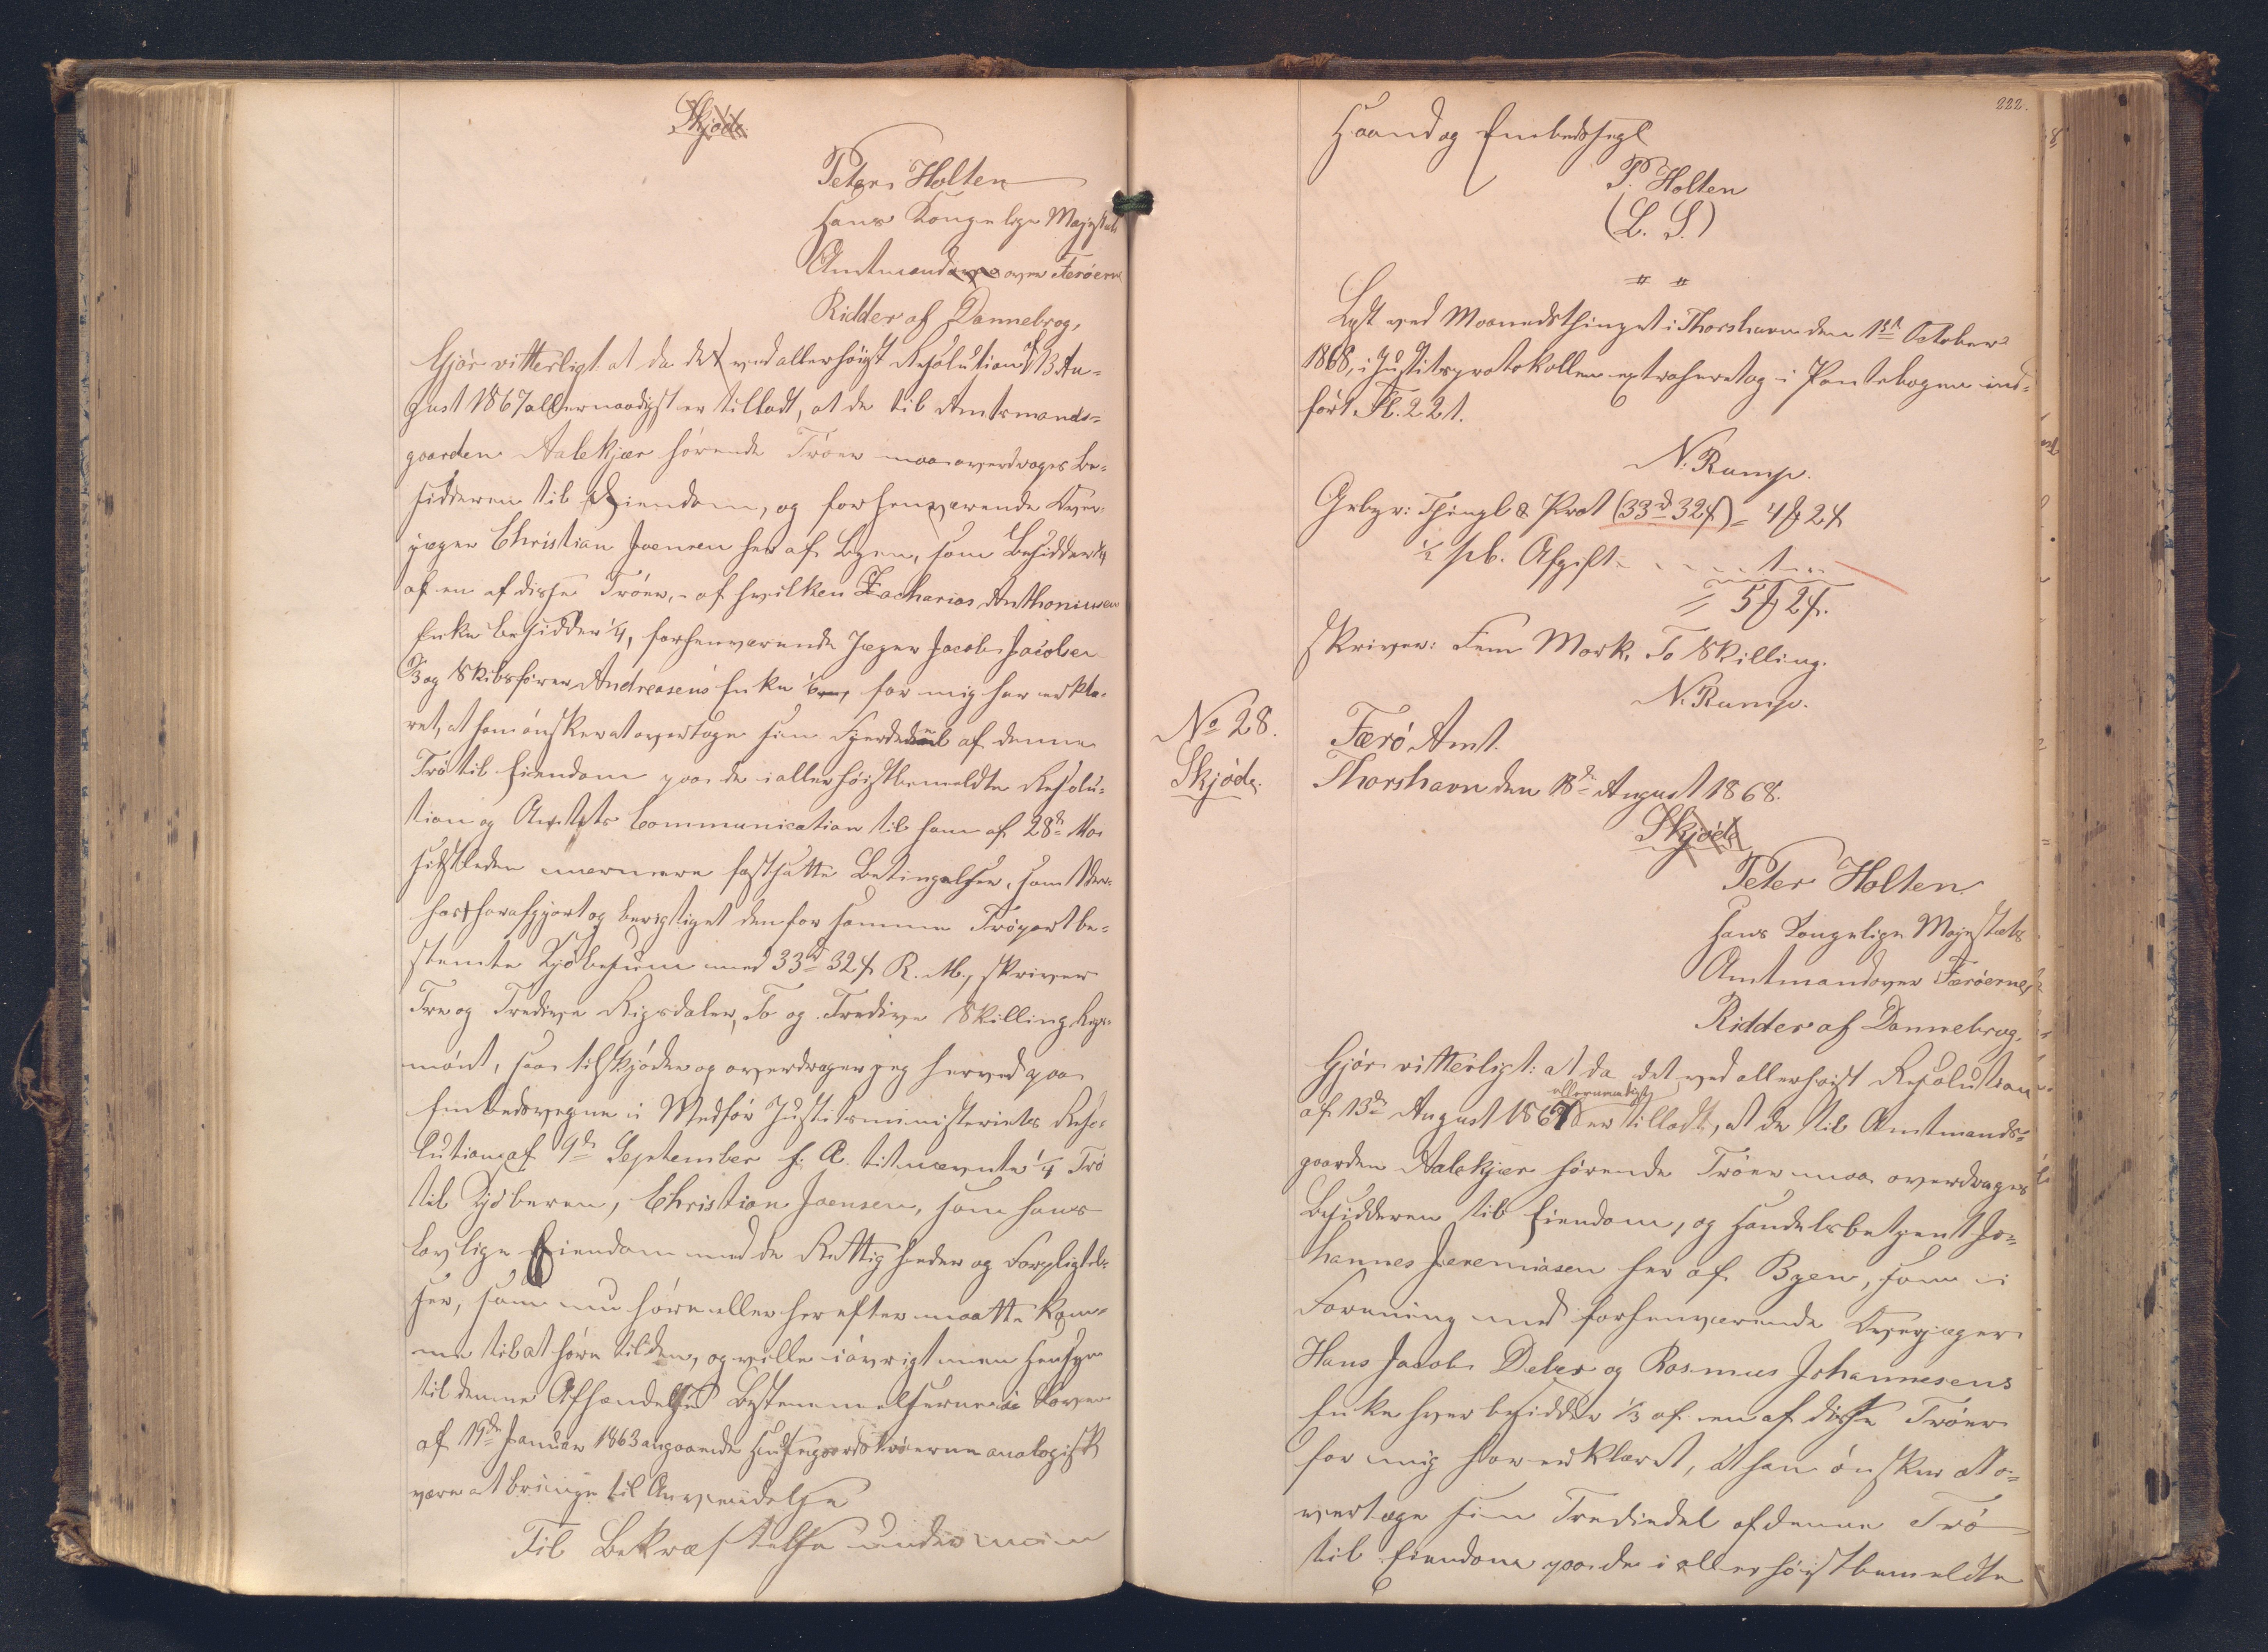 Skjøde
Peter Holten
Hans Kongelige Majestæts
Amtmand over Færöerne
Ridder af Dannebrog,
Gjør vitterligt: at da det ved allerhöigst Resolution af 13 Au-
gust 1867 allernaadigst er tilladt, at de til Amtmands-
gaarden Aalekjær hörende Tröer maa overdrages Be-
sidderen til Eiendom, og forhenværende Over-
jæger Christian Joensen her af Byen, som besidder 1/4
af en af disse Tröer, - af hvilken Zacharias Anthoniusen
Enke besidder 1/4, forhenværende Jæger Jacob Jacobsen
1/3 og Skibsförer Andreasens Enke 1/6, for mig har erklæ-
ret, at han önsker at overtage sin Fjerdedeel af denne
Trö til Eiendom paa de i allerhöistbemeldte Resolu-
tion og Amtets Communication til ham af 28de Mai
sidstleden nærmere fastsatte Betingelser, samt der-
hos har afgjort og berigtiget den for samme Tröpart be-
stemte Kjöbesum med 33rd 32s R. M., skriver
Tre og Tredive Rigsdaler, To og Tredive Skilling Rigs-
mönt, saa tilskjöder og overdrager jeg herved paa
Embedsvegne i Medför Justitsministeriets Reso-
lution af 9de September f. A. bemeldte 1/4 Trö
til Kjöberen, Christian Joensen, som hans
lovlige Eiendom med de Rettigheder og Forpligtel-
ser, som nu höre eller herefter maatte kom-
me til at höre til den, og ville iövrigt med Hensyn
til denne Afhændelse Bestemmelserne i Loven
af 19de Januar 1863 angaaende Huusgaardströerne analogisk
være at bringe til Anvendelse
Til Bekræftelse under min
222.
Haand og Embedssegl
P. Holten
(L. S.)
" "
Lyst ved Maanedsthinget i Thorshavn den 1ste October
1868, i Justitsprotokollen extraheret og i Pantebogen ind-
fört Fl. 221.
N. Rump.
Gebyr: Thingl & Prot (33rd 32s) = 4 2s
1/2 pCt. Afgift . . . 1 "
= 5 2s.
skriver: Fem Mark, To Skilling.
N. Rump.
No 28.
Skjøde.
Færö Amt.
Thorshavn den 18de August 1868.
Skjøde
Peter Holten
Hans Kongelige Majestæts
Amtmand over Færöerne,
Ridder af Dannebrog,
Gjør vitterligt: at da det ved allerhöist Resolution
af 13de August 1867 allernaadigst er tilladt, at de til Amtmands-
gaarden Aalekjær hörende Tröer maa overdrages
Besidderen til Eiendom, og Handelsbetjent Jo-
hannes Jeremiasen her af Byen, som i
Forening med forhenværende Overjæger
Hans Jacob Debes og Rasmus Johannesens
Enke hver besidder 1/3 af en af disse Tröer
for mig har erklæret, at han önsker at o-
vertage sin Trediedel af denne Trö
til Eiendom paa de i allerhöistbemeldte